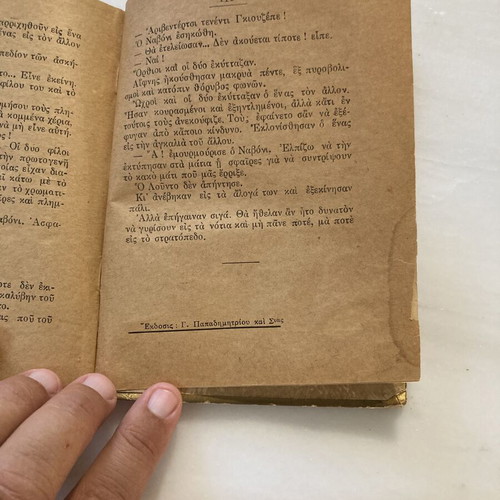 ιρριχηθοῦν εἰς ἕνα
ἕνας εἰς τὸν ἄλλον
πεδίον τῶν ἀσκή-
το... Εἶνε ἐκείνη.
φίλου του καὶ τὸ
μήσου τοὺς πλη-
κομμένα χόρια.
νὰ μὴ εἶνε αὐτή.
ς!
Οἱ δυο φίλοι
τὴν πρωτογενῆ
ποίας εἶχαν δια-
ὶ κάτω μὲ τὸ
ν τὸ χρωματι-
ρες καὶ πλημ-
βόνι. Ἀσφα-
τε δὲν ἐκι-
καλύβην τοῦ
το.
ας ποῦ τοῦ
— Ἀριβεντέρτσι τενέντι Γκιουζέπε!
Ὁ Ναβόνι ἐσηκώθη.
— Θὰ ἐτελείωσαν... Δὲν ἀκούεται τίποτε! εἶπε.
— Ναί!
Ὄρθιοι καὶ οἱ δύο ἐκύτταζαν.
Αἴφνης ἠκούσθησαν μακρυὰ πέντε, ἓξ πυροβολι-
σμοὶ καὶ κατόπιν θόρυβος φωνῶν.
Ὠχροὶ καὶ οἱ δύο ἐκύτταξαν ὁ ἕνας τὸν ἄλλον.
Ἦσαν κουρασμένοι καὶ ἐξηντλημένοι, ἀλλὰ κάτι ἐν
τούτοις τοὺς ἀνεκούφιζε. Τοὺς ἐφαίνετο σὰν νὰ ἐξέ-
φυγαν ἀπὸ κάποιο κίνδυνο. Ἐκλονίσθησαν ὁ ἕνας
εἰς τὴν ἀγκαλιὰ τοῦ ἄλλου.
— Ἄ! ἐμουρμούρισε ὁ Ναβόνι. Ἐλπίζω νὰ τὴν
ἐκτύπησαν στὰ μάτια ᾑ σφαῖρες γιὰ νὰ συντρίψουν
τὸ κακὸ μάτι ποῦ μᾶς ἔρριξε.
Ὁ Λοῦντο δὲν ἀπήντησε.
Κι' ἀνέβηκαν εἰς τὰ ἄλογά των καὶ ἐξεκίνησαν
πάλι.
Ἀλλὰ ἐπήγαιναν σιγά. Θὰ ἤθελαν ἂν ἦτο δυνατὸν
νὰ γυρίσουν εἰς τὰ νότια καὶ μὴ πᾶνε ποτέ, μὰ ποτὲ
εἰς τὸ στρατόπεδο.
Ἔκδοσις: Γ. Παπαδημητρίου καὶ Σιας